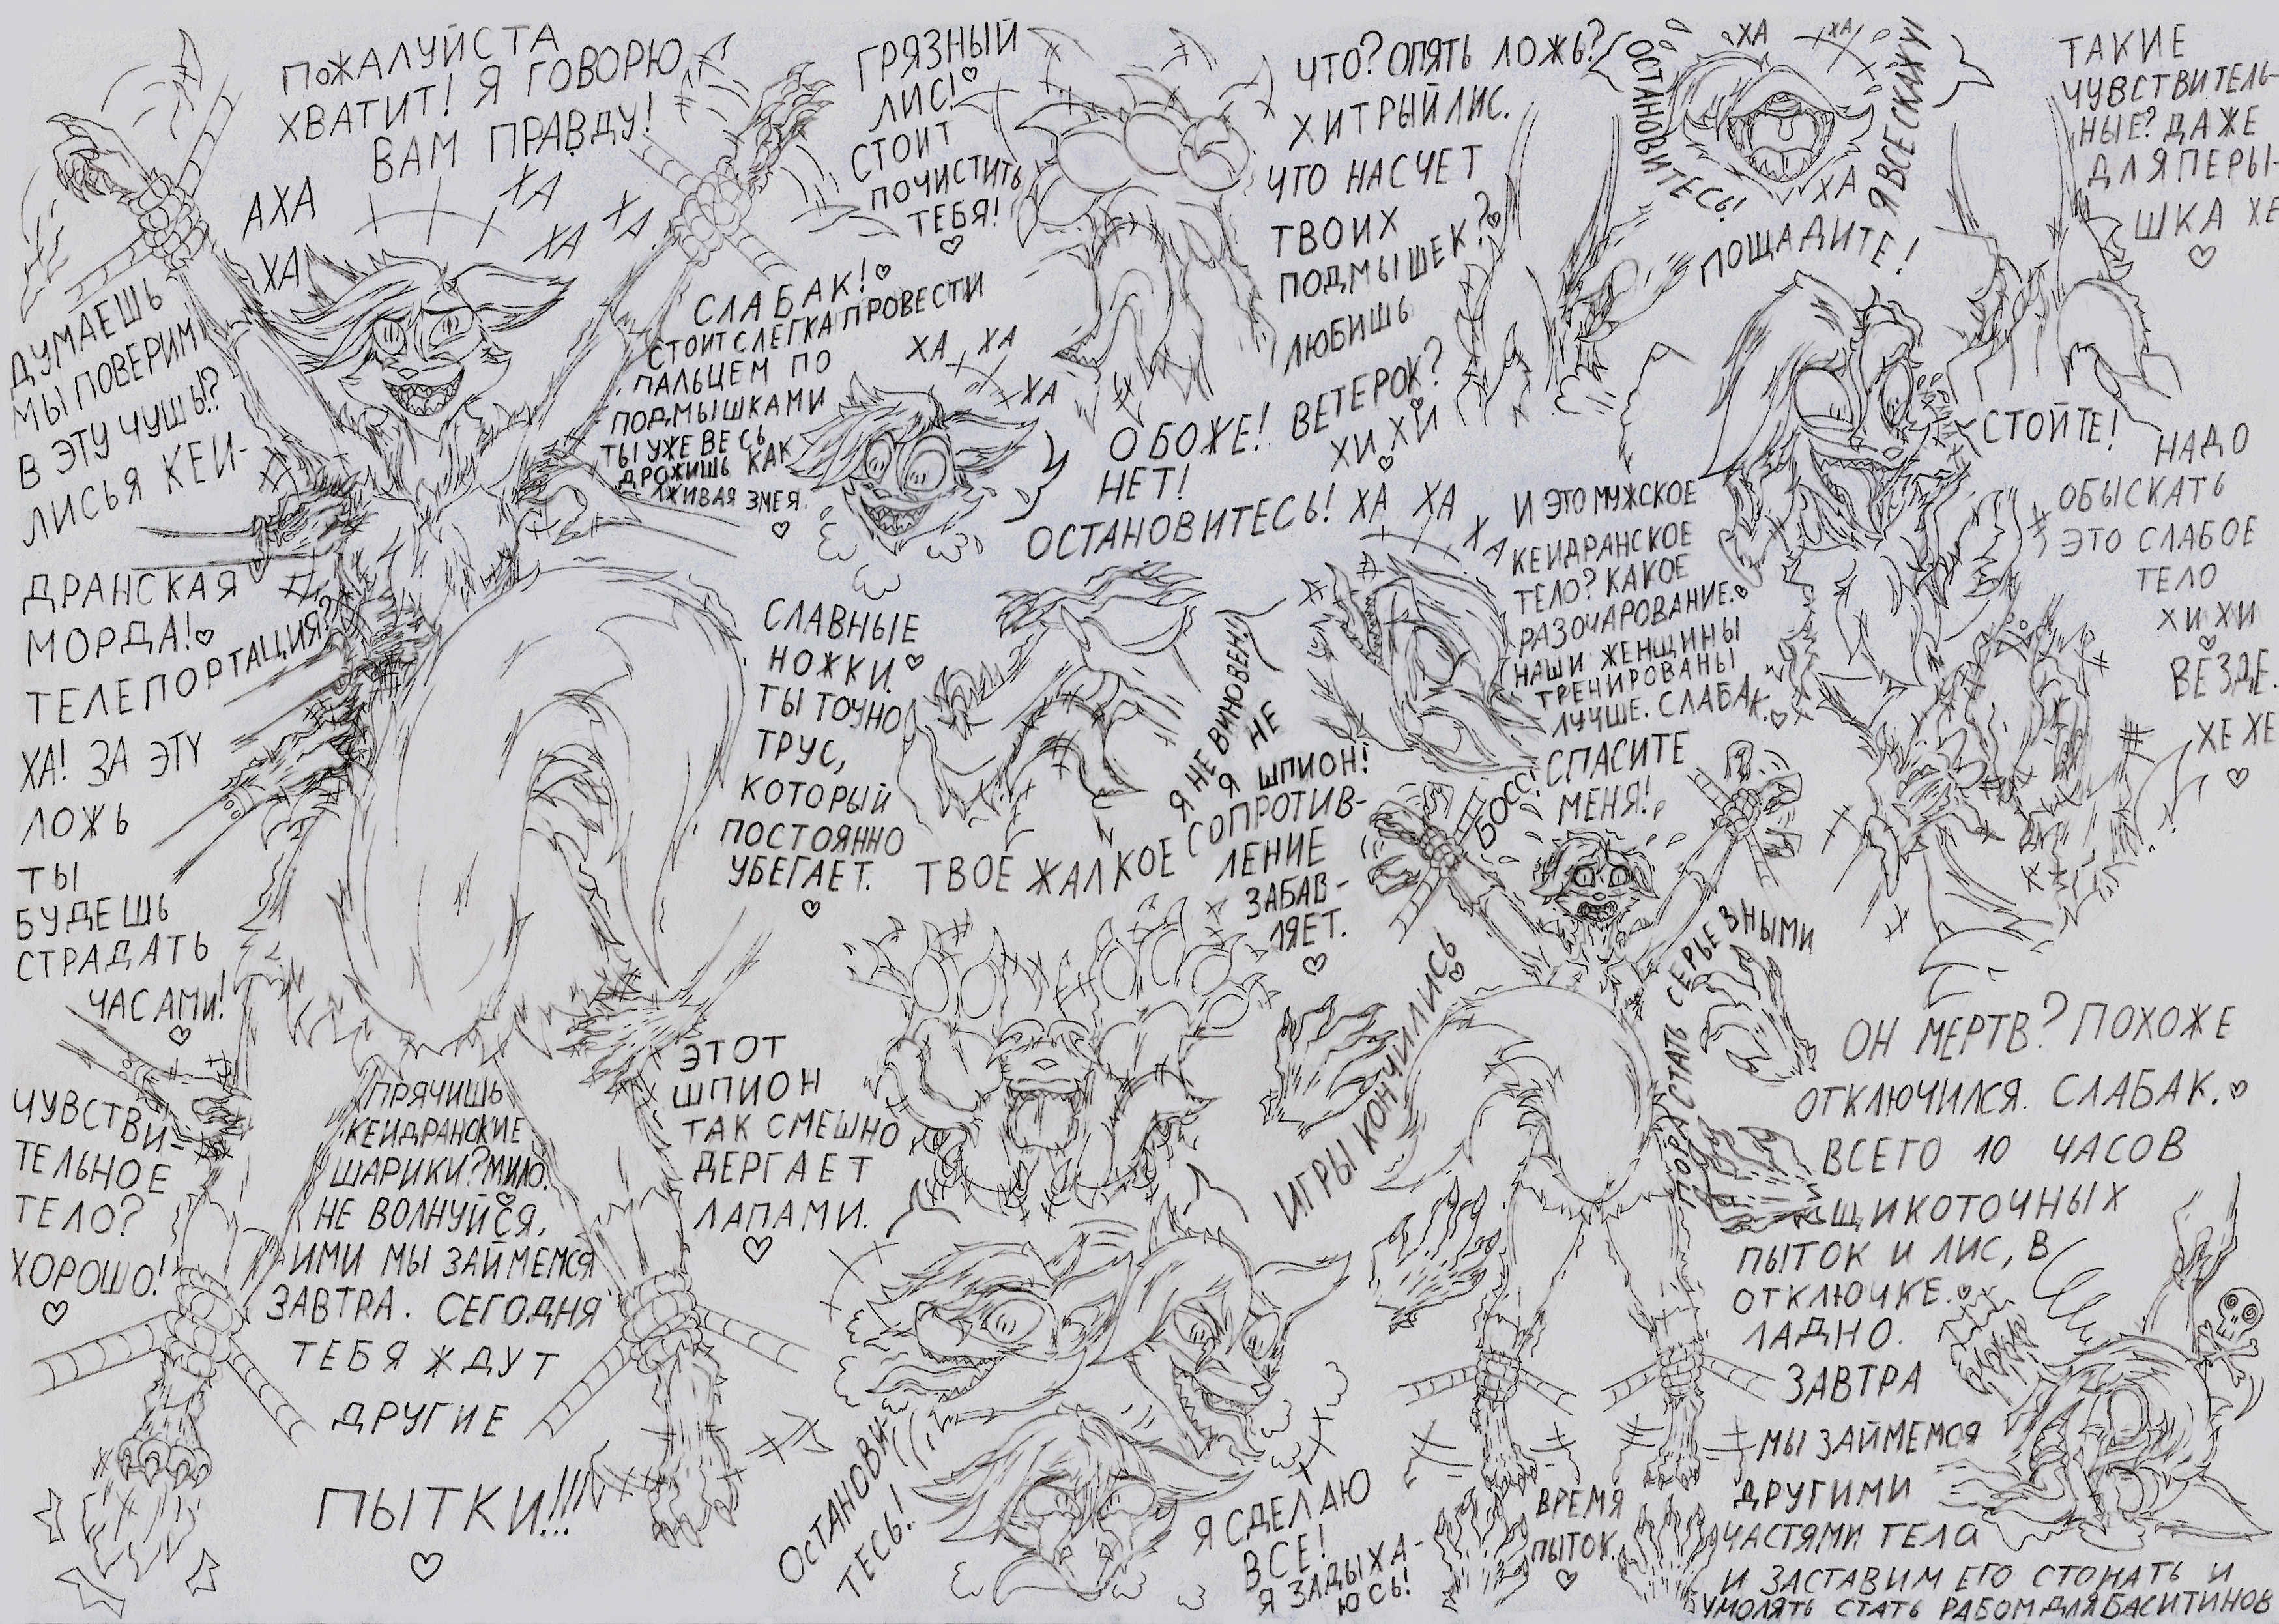 ПОЖАЛУЙСТА
ХВАТИТ! Я ГОВОРЮ
ВАМ ПРАВДУ!
АХА
ХА
ХА
ХА
ХА
ДУМАЕШЬ
МЫ ПОВЕРИМ
В ЭТУ ЧУШЬ!?
ЛИСЬЯ КЕЙ-
ДРАНСКАЯ
МОРДА!
ТЕЛЕПОРТАЦИЯ?
ХА! ЗА ЭТУ
ЛОЖЬ
ТЫ
БУДЕШЬ
СТРАДАТЬ
ЧАСАМИ!
ЧУВСТВИ-
ТЕЛЬНОЕ
ТЕЛО?
ХОРОШО!
ПРЯЧИШЬ
КЕИДРАНСКИЕ
ШАРИКИ? МИЛО.
НЕ ВОЛНУЙСЯ,
ИМИ МЫ ЗАЙМЕМСЯ
ЗАВТРА. СЕГОДНЯ
ТЕБЯ ЖДУТ
ДРУГИЕ
ПЫТКИ!!!
ГРЯЗНЫЙ
ЛИС!
СТОИТ
ПОЧИСТИТЬ
ТЕБЯ!
СЛАБАК!
СТОИТ СЛЕГКА ПРОВЕСТИ
ПАЛЬЦЕМ ПО
ПОДМЫШКАМИ
ТЫ УЖЕ ВЕСЬ
ДРОЖИШЬ КАК
ЛЖИВАЯ ЗМЕЯ.
ХА ХА
ХА
О БОЖЕ!
НЕТ!
ОСТАНОВИТЕСЬ! ХА ХА
ХА
СЛАВНЫЕ
НОЖКИ.
ТЫ ТОЧНО
ТРУС,
КОТОРЫЙ
ПОСТОЯННО
УБЕГАЕТ.
Я НЕ ВИНОВЕН!
НЕ
Я ШПИОН!
ТВОЕ ЖАЛКОЕ СОПРОТИВ-
ЛЕНИЕ
ЗАБАВ-
ЛЯЕТ.
ЭТОТ
ШПИОН
ТАК СМЕШНО
ДЕРГАЕТ
ЛАПАМИ.
ОСТАНОВИ-
ТЕСЬ!
Я СДЕЛАЮ
ВСЕ!
Я ЗАДЫХА-
ЮСЬ!
ЧТО? ОПЯТЬ ЛОЖЬ?
ХИТРЫЙ ЛИС.
ЧТО НАСЧЕТ
ТВОИХ
ПОДМЫШЕК?
ЛЮБИШЬ
ВЕТЕРОК?
ХИ ХИ
ОСТАНОВИТЕСЬ!
ХА
ХА
ХА
Я ВСЕ СКАЖУ!
ПОЩАДИТЕ!
ТАКИЕ
ЧУВСТВИТЕЛЬ-
НЫЕ? ДАЖЕ
ДЛЯ ПЕРЫ-
ШКА ХЕ
СТОЙТЕ!
НАДО
ОБЫСКАТЬ
ЭТО СЛАБОЕ
ТЕЛО
ХИ ХИ
ВЕЗДЕ.
ХЕ ХЕ
И ЭТО МУЖСКОЕ
КЕИДРАНСКОЕ
ТЕЛО? КАКОЕ
РАЗОЧАРОВАНИЕ.
НАШИ ЖЕНЩИНЫ
ТРЕНИРОВАНЫ
ЛУЧШЕ. СЛАБАК.
БОСС! СПАСИТЕ
МЕНЯ!
ИГРЫ КОНЧИЛИСЬ
ПОРА СТАТЬ СЕРЬЕЗНЫМИ
ВРЕМЯ
ПЫТОК.
ОН МЕРТВ? ПОХОЖЕ
ОТКЛЮЧИЛСЯ. СЛАБАК.
ВСЕГО 10 ЧАСОВ
ЩИКОТОЧНЫХ
ПЫТОК И ЛИС, В
ОТКЛЮЧКЕ.
ЛАДНО.
ЗАВТРА
МЫ ЗАЙМЕМСЯ
ДРУГИМИ
ЧАСТЯМИ ТЕЛА
И ЗАСТАВИМ ЕГО СТОНАТЬ И
УМОЛЯТЬ СТАТЬ РАБОМ ДЛЯ БАСИТИНОВ